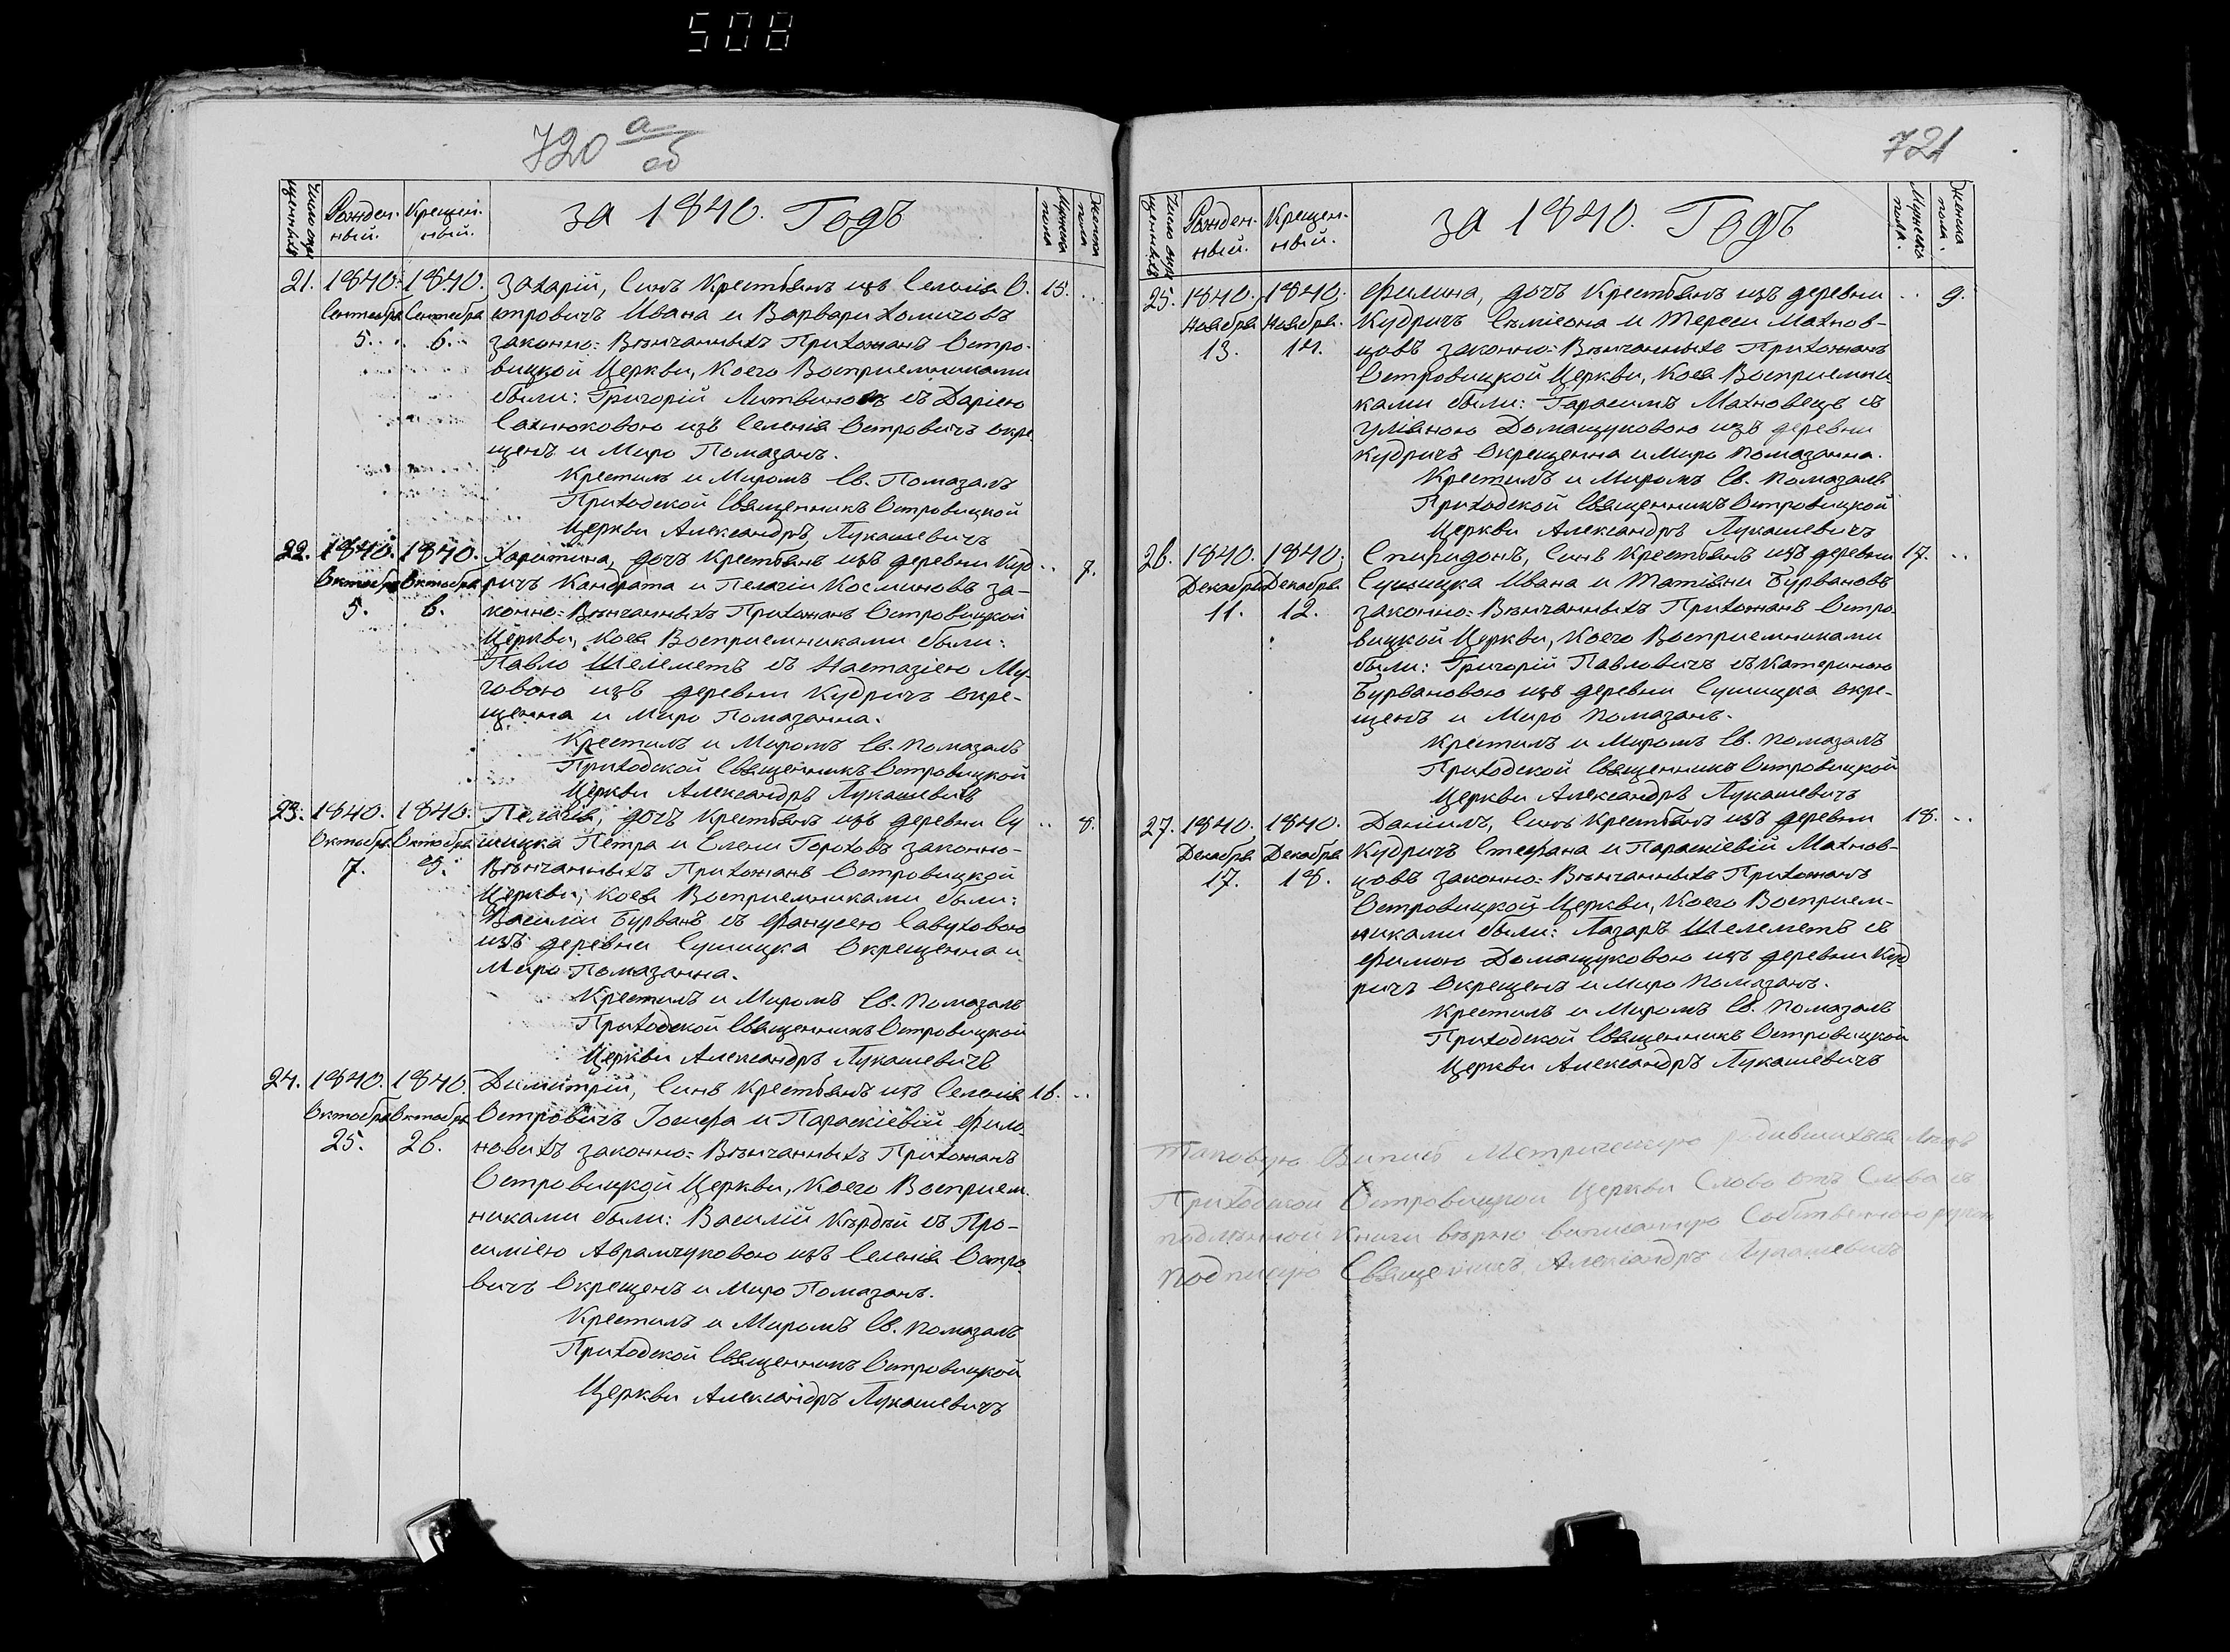 508
720 а
об
Число окре
щенныхъ
Рожден-
ный.
Крещен-
ный.
за 1840. Годъ
Мужеска
пола
Женска
пола
21. 1840. 1840. Захарій, Синъ Крестьянъ изъ Селенія О. 15. ..
Сентября Сентября стровичъ Ивана и Варвари Хомичовъ
5. 6. законно=Вѣнчанныхъ Прихожанъ Остро-
вицкой Церкви, Коего Воспріемниками
были: Григорій Литвиновъ съ Даріею
Сахнюковою изъ Селенія Островичъ окре
щенъ и Миро Помазанъ.
Крестилъ и Миромъ Св. Помазалъ
Приходской Священникъ Островицкой
Церкви Александръ Лукашевичъ
22. 1840. 1840. Харитина, дочь Крестьянъ изъ деревни Куд .. 7.
Октября Октября ричъ Кондрата и Пелагіи Косминовъ за-
5. 6. конно=Вѣнчанныхъ Прихожанъ Островицкой
Церкви, Коея Воспріемниками были:
Павло Шелеметъ съ Настазіею Му-
говою изъ деревни Кудричъ окре-
щенна и Миро Помазанна.
Крестилъ и Миромъ Св. Помазалъ
Приходской Священникъ Островицкой
Церкви Александръ Лукашевичъ
23. 1840. 1840. Пелагія, дочъ Крестьянъ изъ деревни Су .. 8.
Октября Октября шицка Петра и Елени Гороховъ законно-
7. 8. Вѣнчанныхъ Прихожанъ Островицкой
Церкви, Коея Воспріемниками были:
Василій Бурванъ съ Фанусею Савуховою
изъ деревни Сушицка Окрещенна и
Миро Помазанна.
Крестилъ и Миромъ Св. Помазалъ
Приходской Священникъ Островицкой
Церкви Александръ Лукашевичъ
24. 1840. 1840. Димитрій, Синъ Крестьянъ изъ Селенія 16. ..
Октября Октября Островичъ Іосифа и Параскіевій Фило-
25. 26. новихъ законно=Вѣнчанныхъ Прихожанъ
Островицкой Церкви, Коего Воспріем-
никами были: Василій Кърдѣй съ Про-
симіею Аврамчуковою изъ Селенія Остро
вичъ Окрещенъ и Миро Помазанъ.
Крестилъ и Миромъ Св. Помазалъ
Приходской Священникъ Островицкой
Церкви Александръ Лукашевичъ
721
Число окре
щенныхъ
Рожден-
ный.
Крещен-
ный.
за 1840. Годъ
Мужеска
пола.
Женска
пола.
25. 1840. 1840. Филина, дочъ Крестьянъ изъ деревни .. 9.
Ноября Ноября. Кудричъ Сѵмісона и Тереси Махнов-
13. 14. цовъ законно=Вѣнчанныхъ Прихожанъ
Островицкой Церкви, Коея Воспріемни-
ками были: Гарасимъ Махновецъ съ
Уліяною Домащуковою изъ деревни
Кудричъ Окрещенна и Миро Помазанна.
Крестилъ и Миромъ Св. Помазалъ
Приходской Священникъ Островицкой
Церкви Александръ Лукашевичъ
26. 1840. 1840. Спиридонъ, Синъ Крестьянъ изъ деревни 17. ..
Декабря Декабря Сушицка Ивана и Татіяни Бурвановъ
11. 12. законно=Вѣнчанныхъ Прихожанъ Остро-
вицкой Церкви, Коего Воспріемниками
были: Григорій Павловичъ съ Катериною
Бурвановою изъ деревни Сушицка окре-
щенъ и Миро Помазанъ.
Крестилъ и Миромъ Св. Помазалъ
Приходской Священникъ Островицкой
Церкви Александръ Лукашевичъ
27. 1840. 1840. Даниилъ, Синъ Крестьянъ изъ деревни 18. ..
Декабря Декабря Кудричъ Стефана и Параскіевій Махнов-
17. 18. цовъ законно=Вѣнчанныхъ Прихожанъ
Островицкой Церкви, Коего Воспріем-
никами были: Лазаръ Шелеметъ съ
Фимою Домащуковою изъ деревни Куд
ричъ Окрещенъ и Миро Помазанъ.
Крестилъ и Миромъ Св. Помазалъ
Приходской Священникъ Островицкой
Церкви Александръ Лукашевичъ
Таковую Випись Метрическую родившихъся
Приходской Островицкой Церкви Слово отъ Слова съ
подлѣнной Книги вѣрно виписанную Собственноручно
Подписую Священникъ Александръ Лукашевичъ